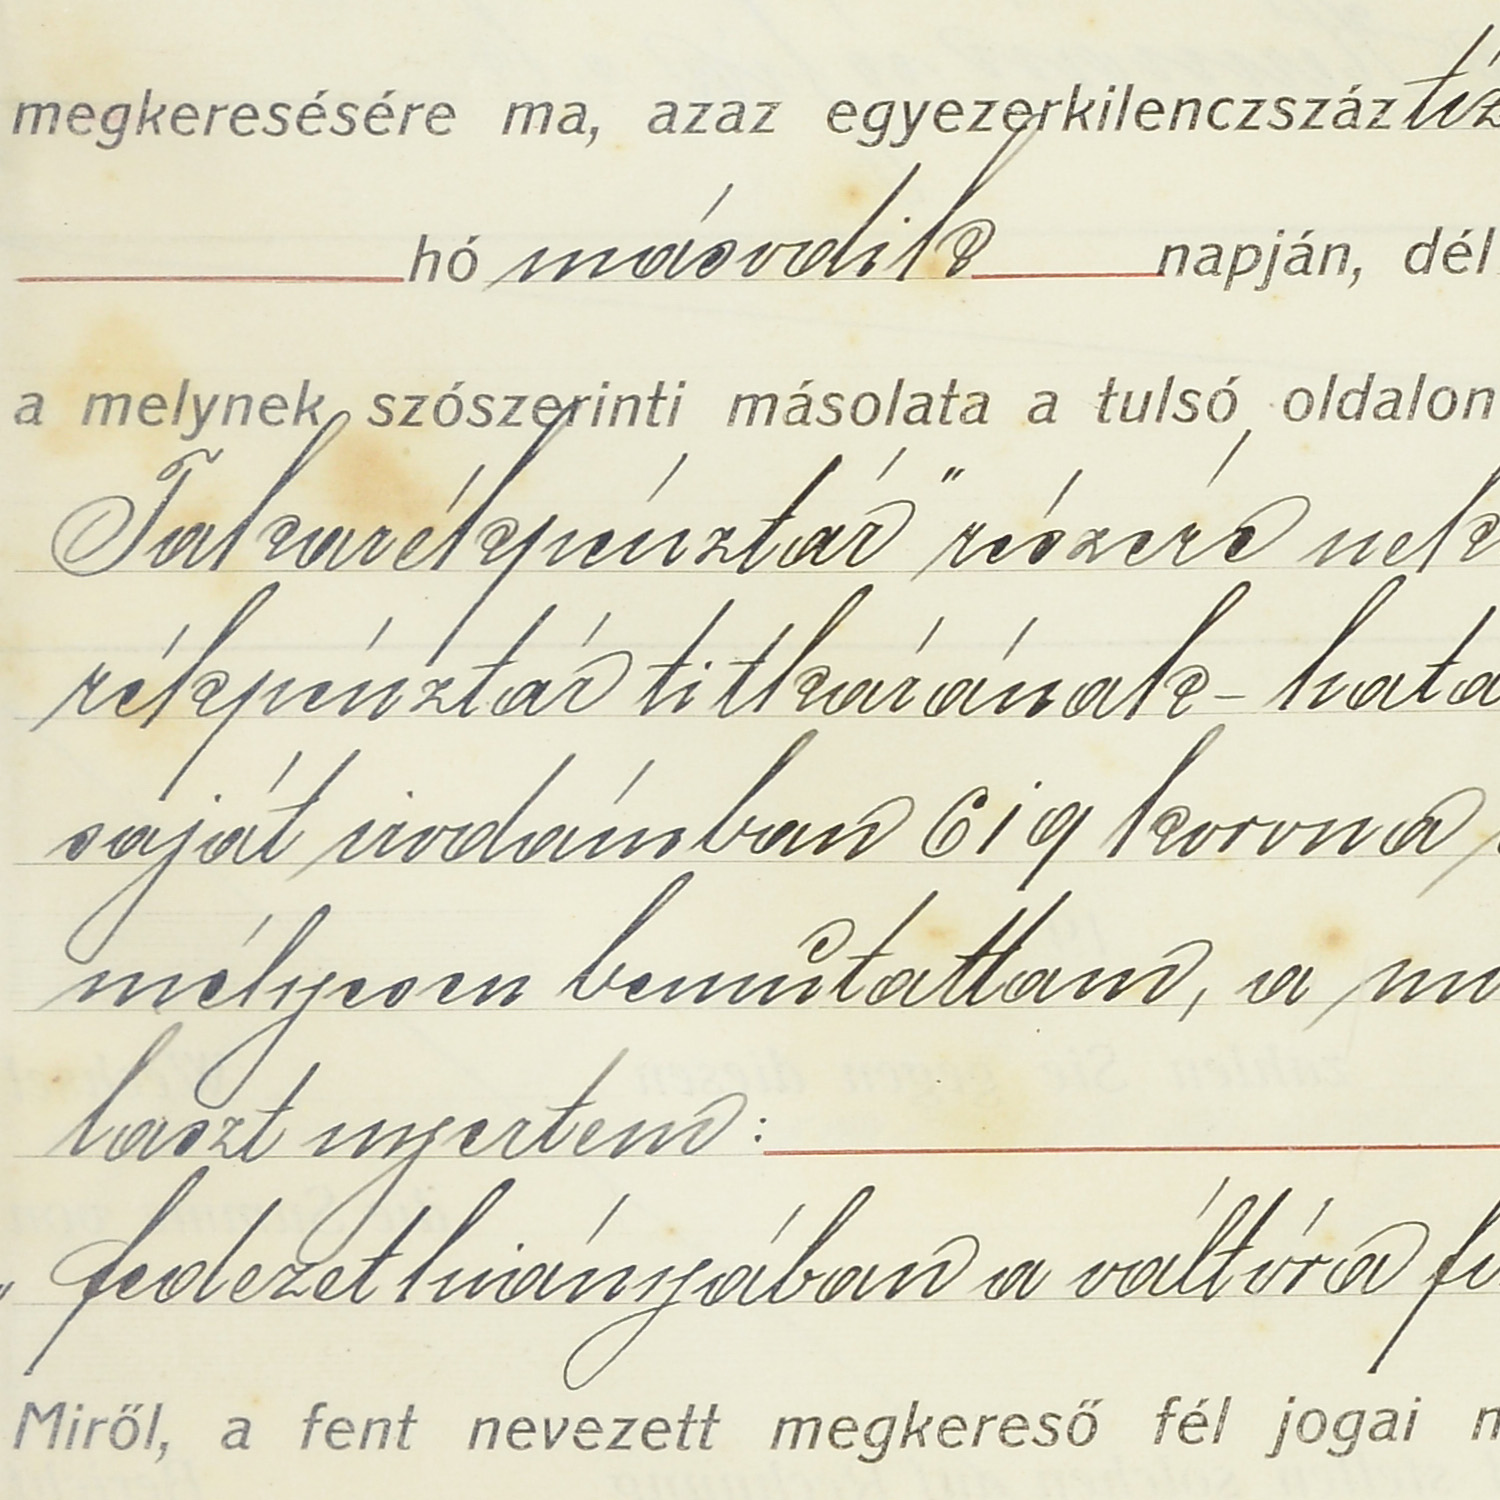 megkeresésére ma, azaz egyezerkilenczszáztiz
hó második napján, dél
a melynek szószerinti másolata a tulsó oldalon
Takarékpénztár" részére nek
rékpénztár titkárának - hata
saját irodámban 619 korona
mélyesen bemutattam, a mi
laszt nyertem:
„fedezet hiányában a váltóra fi
Miről, a fent nevezett megkereső fél jogai m